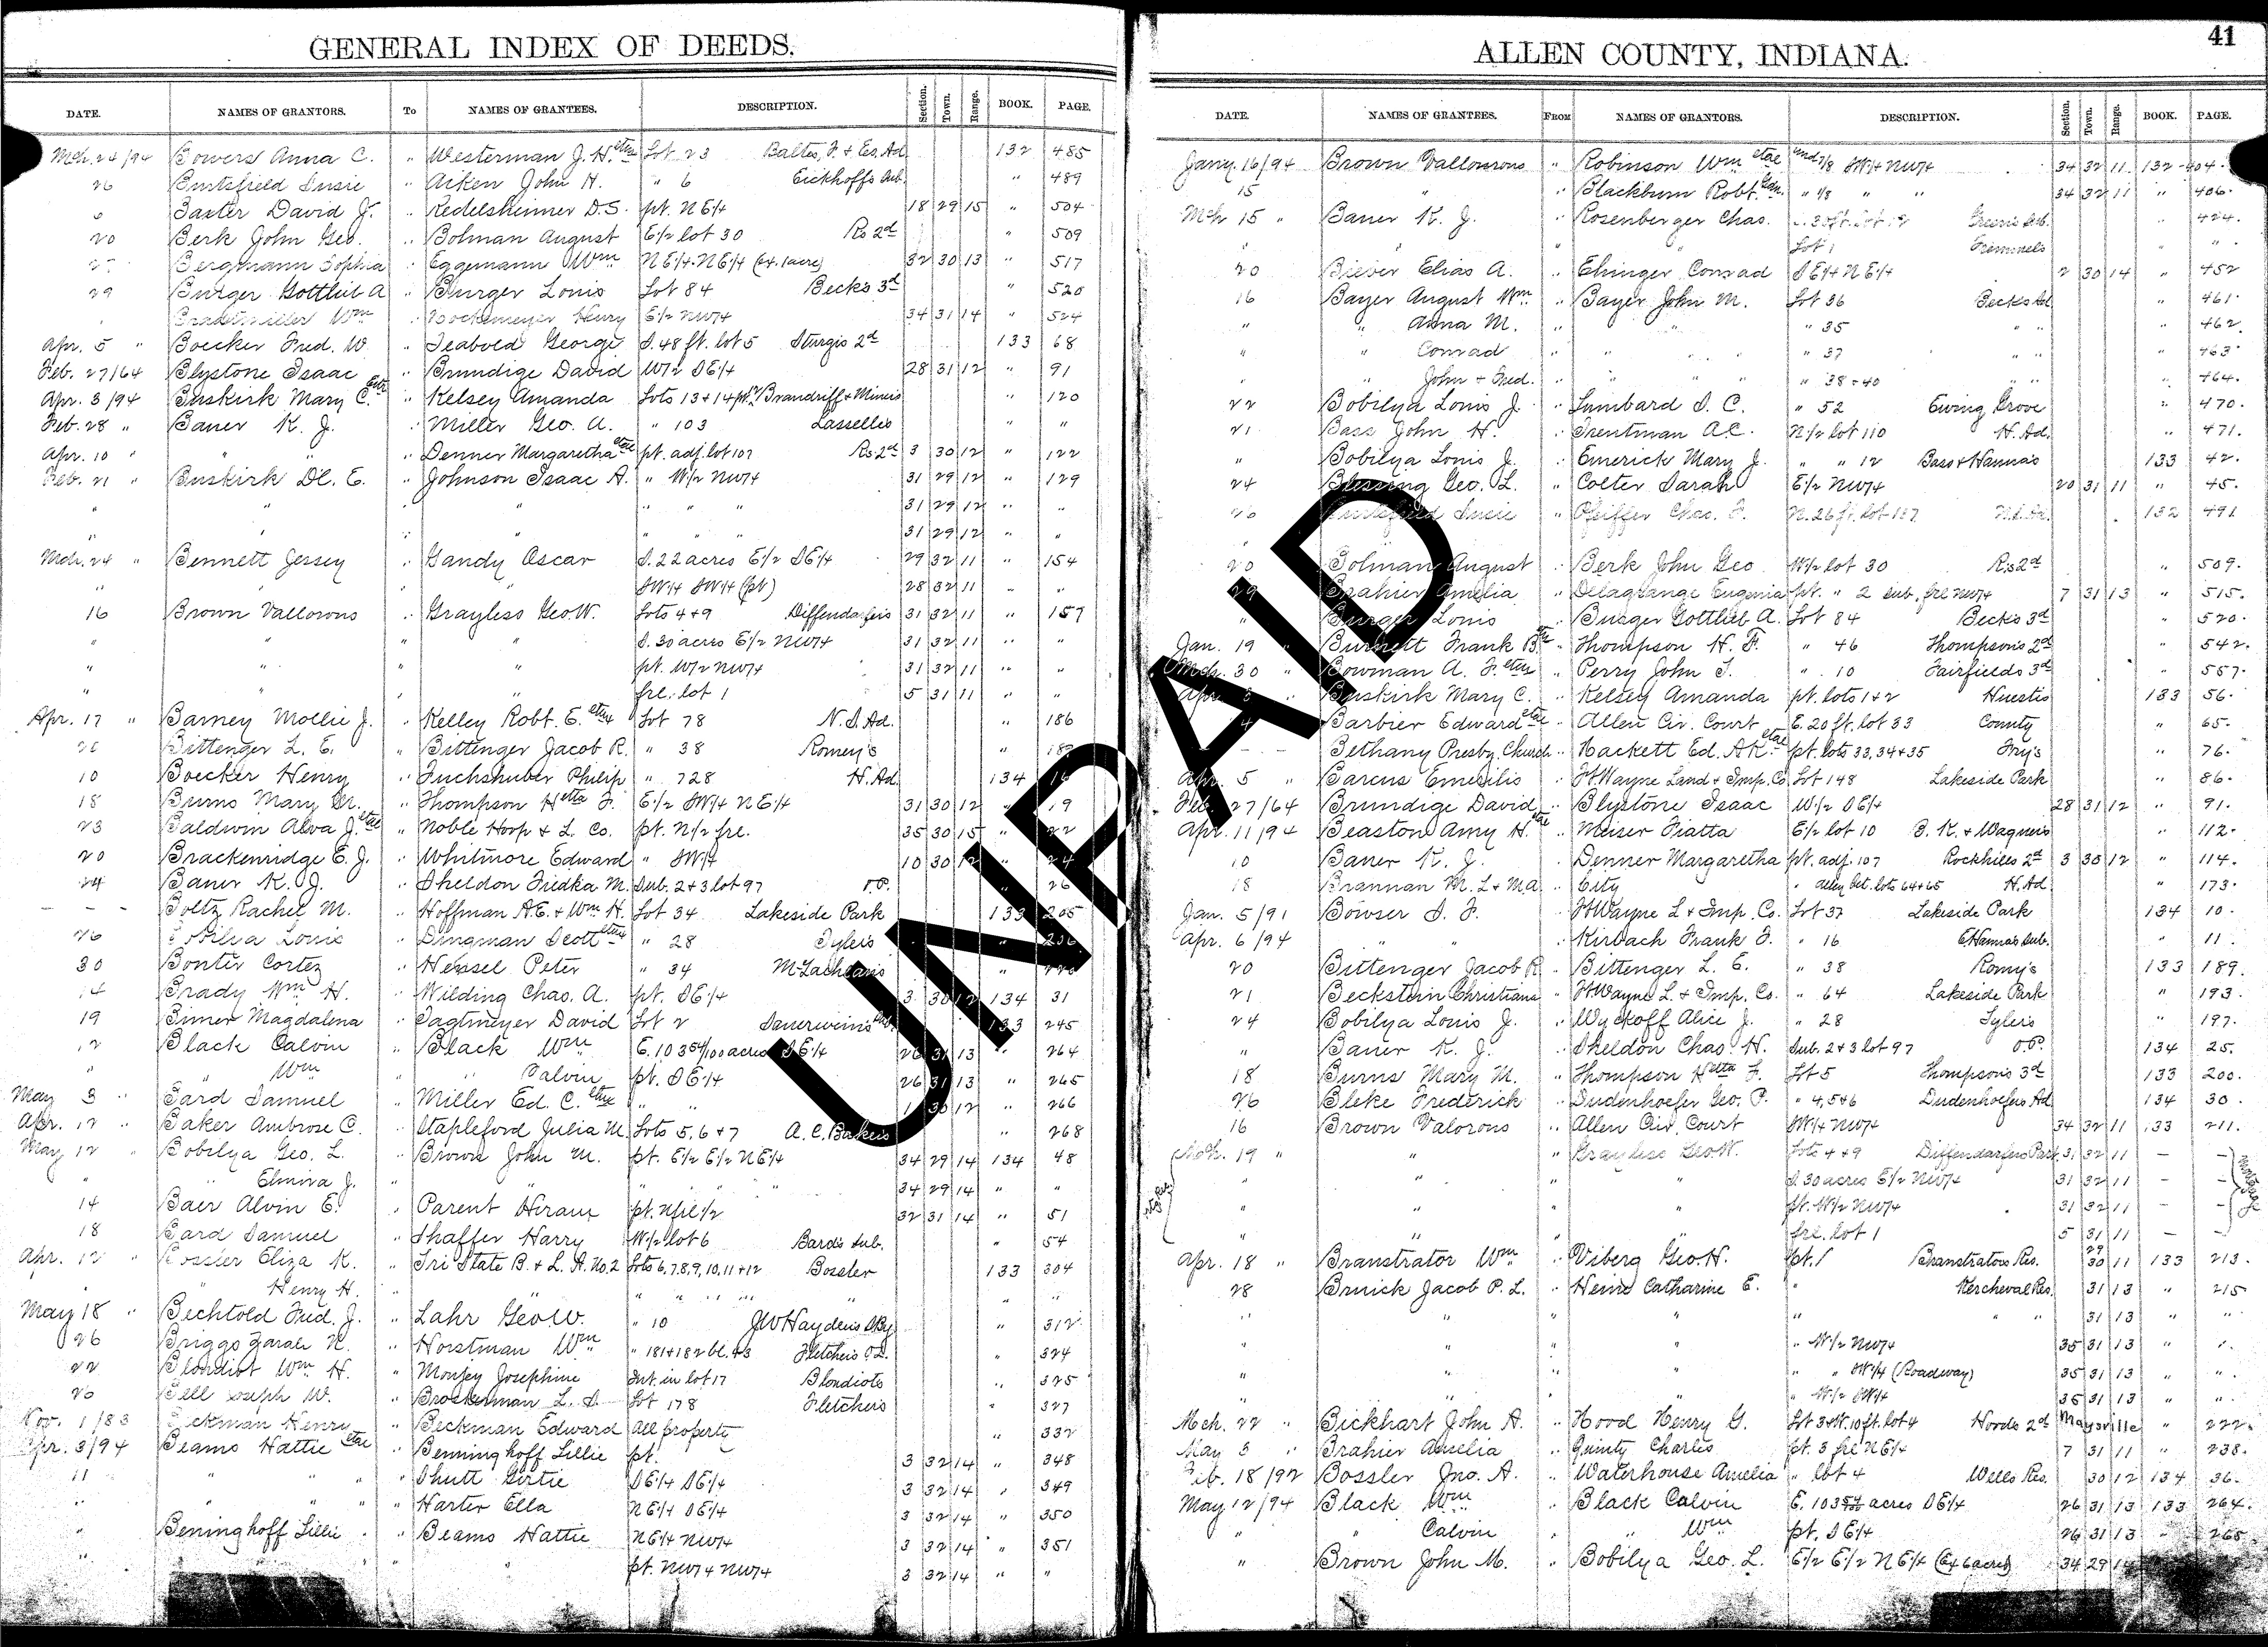 GENERAL INDEX OF DEEDS.
DATE. NAMES OF GRANTORS. To NAMES OF GRANTEES. DESCRIPTION. Section. Town. Range. BOOK. PAGE.
Mch. 24/94 Bowers Anna C. " Westerman J. H. etux Lot 23 Baltes, J. & Es. Ad 132 485
26 Burtsfield Susie " Aiken John H. " 6 Eickhoffs Sub. " 489
Baxter David J. " Redelsheimer D.S. pt. NE/4 18 29 15 " 504
20 Berk John Geo. " Bolman August E/2 lot 30 Rs 2d " 509
Bergmann Sophia " Eggemann Wm NE/4 NE/4 (ex. 1 acre) 32 30 13 " 517
29 Burger Gottlieb A " Burger Louis Lot 84 Beck's 3d " 520
Wm " Henry E/2 NW/4 34 31 14 " 524
Apr. 5 " Boecker Fred. W. " Seabold George S. 48 ft. lot 5 Sturgis 2d 133 68
Feb. 27/64 Blystone Isaac " Brundige David W/2 SE/4 28 31 12 " 91
Apr. 3/94 Buskirk Mary C. " Kelsey Amanda Lots 13 & 14 Brandriff & Miners " 120
Feb. 28 " Baner K. J. " Miller Geo. A. " 103 Lasselles " "
Apr. 10 " " " " Denner Margaretha pt. adj. lot 107 Rs 2d 3 30 12 " 122
Feb. 21 " Buskirk Dl. E. " Johnson Isaac A. " W/2 NW/4 31 29 12 " 129
" " " " " " 31 29 12 " "
" " " " 31 29 12 " "
Mch. 24 " Bennett Jersey " Gandy Oscar S. 22 acres E/2 SE/4 29 32 11 " 154
" " SW/4 SW/4 (pt) 28 32 11 " "
16 Brown Vallorous " Grayless Geo. W. Lots 4 & 9 Diffendarfers 31 32 11 " 157
" " " " S. 30 acres E/2 NW/4 31 32 11 " "
" " " " pt. W/2 NW/4 31 32 11 " "
" " " " frl. lot 1 5 31 11 " "
Apr. 17 " Barney Mollie J. " Kelley Robt. E. etux Lot 78 N. S. Ad. " 186
Bittenger L. E. " Bittenger Jacob R. " 38 Romey's " 189
10 Boecker Henry " Fuchshuber Philip " 728 H. Ad 134
18 Burns Mary M. " Thompson Hetta F. E/2 SW/4 NE/4 31 30 12 " 19
23 Baldwin Alva J. etal " Noble Hoop & L. Co. pt. N/2 frl. 35 30 15 " 22
20 Brackenridge E. J. " Whitmore Edward " SW/4 10 30 12 " 24
24 Baner K. J. " Sheldon Fredka M. Sub. 2 & 3 lot 97 O.P. " 26
- - - Boltz Rachel M. " Hoffman A.E. & Wm H. Lot 34 Lakeside Park 133 205
26 Bobilya Louis " Dingman Scott etux " 28 Tylers "
30 Bonter Cortez " Hensel Peter " 34 McLachlans "
14 Brady Wm H. " Wilding Chas. A. pt. SE/4 3 30 12 134 31
19 Magdalena " Tagtmeyer David Lot 2 133 245
12 Black Calvin " Black Wm E. 103 54/100 acres SE/4 26 31 13 " 264
" " Wm " Calvin pt. SE/4 26 31 13 " 265
May 3 " Bard Samuel " Miller Ed. C. etux " " 1 30 12 " 266
Apr. 12 " Baker Ambrose C. " Stapleford Julia M. Lots 5, 6 & 7 A. C. Bakers " 268
May 12 " Bobilya Geo. L. " Brown John M. pt. E/2 E/2 NE/4 34 29 14 134 48
" " Elmira J. " " " 34 29 14 " "
14 Baer Alvin E. " Parent Hiram pt. N frl 1/2 32 31 14 " 51
18 Bard Samuel " Shaffer Harry W/2 lot 6 Bards Sub. " 54
Apr. 12 " Bossler Eliza K. " Tri State B. & L. A. No. 2 Lots 6, 7, 8, 9, 10, 11 & 12 Bossler 133 304
" Henry H. " " "
May 18 " Bechtold Fred. J. " Lahr Geo. W. " 10 J W Haydens " 312
26 Briggs Zarah N. " Horstman Wm " 181 & 182 bl. 43 Fletchers " 324
22 Blondiot Wm H. " Monjey Josephine Int. in lot 17 Blondiots " 325
26 Bell Joseph W. " Brockerman L. S. Lot 178 Fletchers " 327
Nov. 1/83 Beckman Henry " Beckman Edward All property " 332
Apr. 3/94 Beams Hattie etal " Benninghoff Lillie pt. 3 32 14 " 348
11 " " " Shutt Girtie SE/4 SE/4 3 32 14 " 349
" " " " Harter Ella NE/4 SE/4 3 32 14 " 350
" Beninghoff Lillie " Beams Hattie NE/4 NW/4 3 32 14 " 351
" " pt. NW/4 NW/4 3 32 14 " "
ALLEN COUNTY, INDIANA.
41
DATE. NAMES OF GRANTEES. FROM NAMES OF GRANTORS. DESCRIPTION. Section. Town. Range. BOOK. PAGE.
Jany. 16/94 Brown Vallourous " Robinson Wm etal und 7/8 SW/4 NW/4 34 32 11 132 404
15 " " Blackburn Robt. Gdn. " 1/8 " " 34 32 11 " 406
Mch 15 " Baner K. J. " Rosenberger Chas. " 424
" " " Lot 1 " "
20 Biever Elias A. " Ehinger Conrad SE/4 NE/4 2 30 14 " 452
16 Bayer August Wm " Bayer John M. Lot 36 Becks Ad " 461
" " Anna M. " " " 35 " " " 462
" " Conrad " " " 37 " " " 463
" " John & Fred. " " " 38 & 40 " " " 464
22 Bobilya Louis J. " Lumbard S. C. " 52 Ewing Grove " 470
21 Bass John H. " Trentman A.C. N/2 lot 110 H. Ad. " 471
" Bobilya Louis J. " Emerick Mary J. " " 12 Bass & Hannas 133 42
24 Blessing Geo. L. " Colter Sarah E/2 NW/4 20 31 11 " 45
26 Burtsfield Susie " Pfeiffer Chas. F. N. 26 ft. lot 137 132 491
20 Bolman August " Berk John Geo W/2 lot 30 Rs 2d " 509
29 Brahier Amelia " Delagrange Eugenia pt. " 2 sub. frl NW/4 7 31 13 " 515
" Burger Louis " Burger Gottlieb A. Lot 84 Beck's 3d " 520
Jan. 19 " Burnett Frank B. " Thompson H. F. " 46 Thompson's 2d " 542
Mch. 30 " Bowman A. F. etux " Perry John T. " 10 Fairfields 3d " 557
Apr. " Buskirk Mary C. " Kelsey Amanda pt. lots 1 & 2 Huestis 133 56
4 Barbier Edward etal " Allen Cir. Court E. 20 ft. lot 33 County " 65
- - Bethany Presby. Church " Hackett Ed. A.K. etal pt. lots 33, 34 & 35 Fry's " 76
Apr. 5 " Barcus Emesilis " Ft Wayne Land & Imp. Co. Lot 148 Lakeside Park " 86
Feb. 27/64 Brundige David " Blystone Isaac W/2 SE/4 28 31 12 " 91
Apr. 11/94 Beaston Amy H. " Meiser Fiatta E/2 lot 10 B. K. & Wagners " 112
10 Baner K. J. " Denner Margaretha pt. adj. 107 Rockhills 2d 3 30 12 " 114
18 Brannan M. L & M.A. " City " Alley bet. lots 64 & 65 H. Ad " 173
Jan. 5/91 Bowser S. F. " Ft Wayne L & Imp. Co. Lot 37 Lakeside Park 134 10
Apr. 6/94 " " Kirbach Frank F. " 16 E Hanna's Sub. " 11
20 Bittenger Jacob R " Bittenger L. E. " 38 Romy's 133 189
21 Beckstein Christiana " Ft Wayne L. & Imp. Co. " 64 Lakeside Park " 193
24 Bobilya Louis J. " Wyckoff Alice J. " 28 Tylers " 197
" Baner K. J. " Sheldon Chas. H. Sub. 2 & 3 lot 97 O.P. 134 25
18 Burns Mary M. " Thompson Hetta F. Lot 5 Thompsons 3d 133 200
26 Bleke Frederick " Dudenhoefer Geo. P. " 4, 5 & 6 Dudenhoefers Ad 134 30
16 Brown Valorous " Allen Cir. Court SW/4 NW/4 34 32 11 133 211
Mch. 19 " " " Grayless Geo. W. Lots 4 & 9 Diffendarfers Park 31 32 11 -
" " " " S. 30 acres E/2 NW/4 31 32 11 - -
" " " " pt. W/2 NW/4 31 32 11 - -
" " " frl. lot 1 5 31 11 - -
Apr. 18 " Branstrator Wm " Viberg Geo. H. pt. 1 Branstrators Res. 29 30 11 133 213
28 Bruick Jacob P. L. " Heine Catharine E. " Kercheval Res. 31 13 " 215
" " " " " " 31 13 " "
" " " " " W/2 NW/4 35 31 13 " "
" " " " " " SW/4 (Roadway) 35 31 13 " "
" " " " " W/2 SW/4 35 31 13 " "
Mch. 22 " Bickhart John A. " Hood Henry G. Lot 3 & W. 10 ft. lot 4 Hoods 2d Maysville " 222
May 3 " Brahier Amelia " Quinty Charles pt. 3 frl NE/4 7 31 11 " 238
Feb. 18/92 Bossler Jno. A. " Waterhouse Amelia " lot 4 Wells Res. 30 12 134 36
May 12/94 Black Wm " Black Calvin E. 103 54/100 acres SE/4 26 31 13 133 264
" " Calvin " " Wm pt. SE/4 26 31 13 " 265
" Brown John M. " Bobilya Geo. L. E/2 E/2 NE/4 (Ex 6 acres) 34 29 14
UNPAID